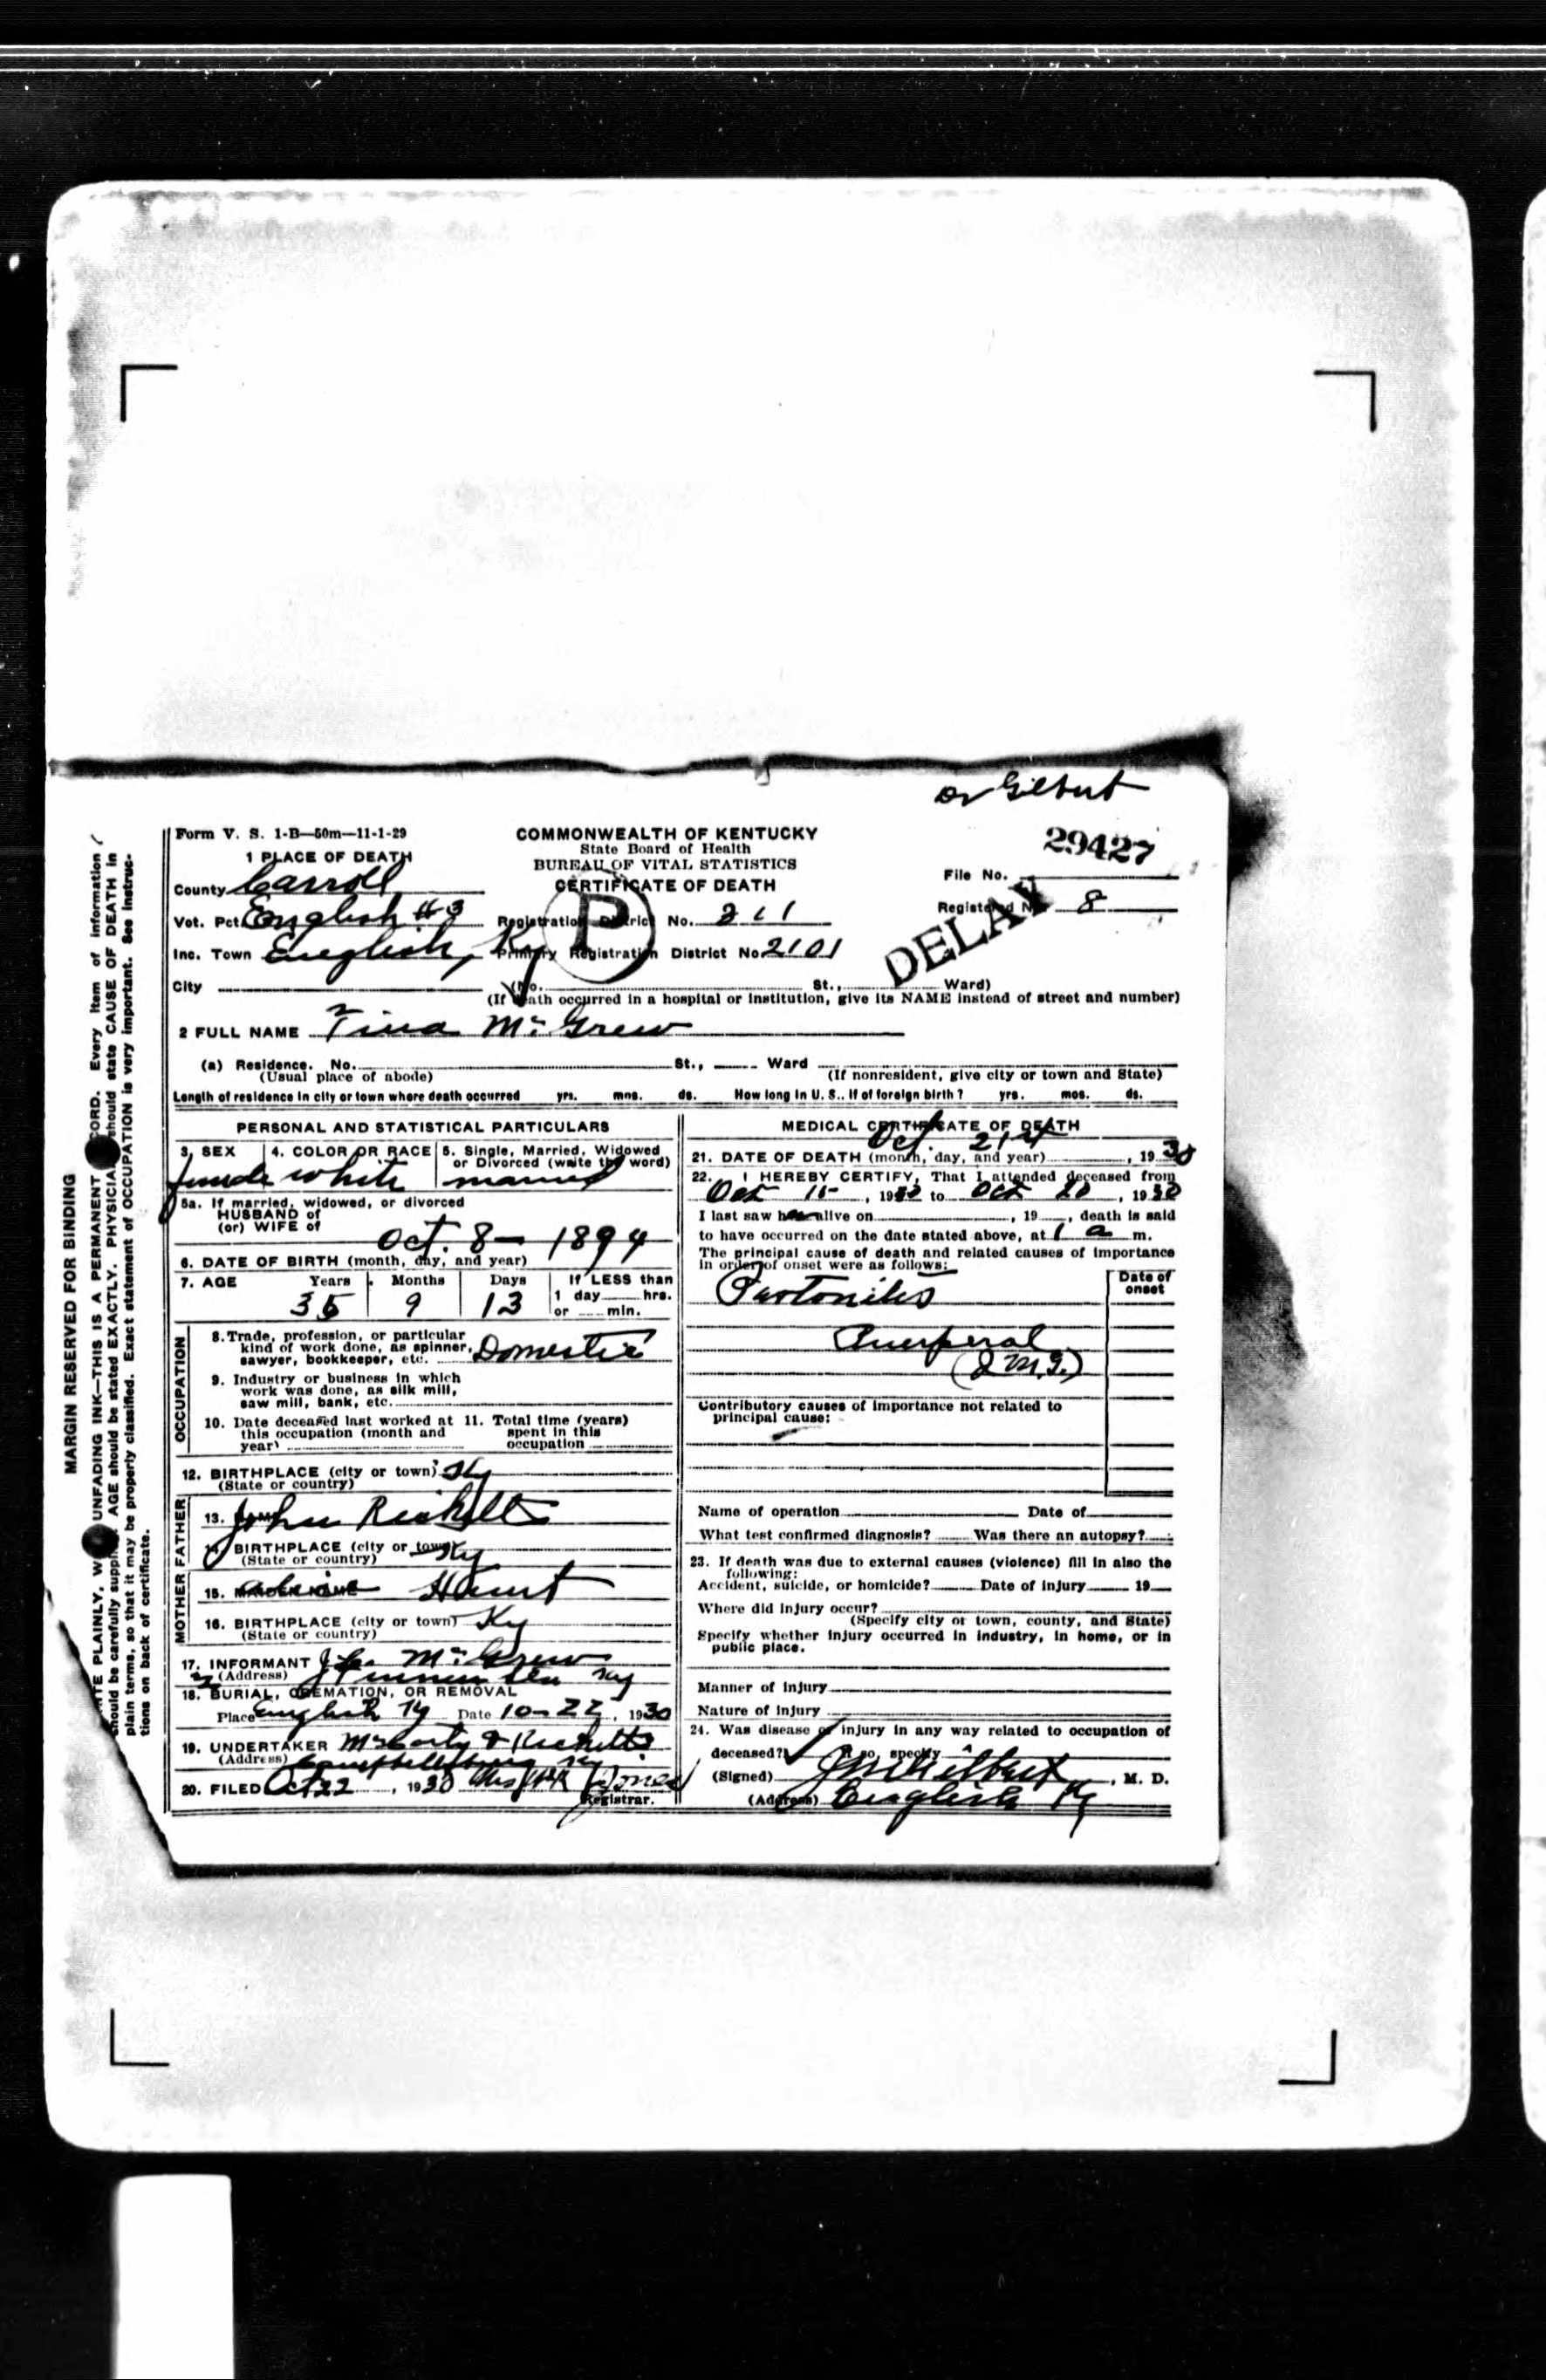 Dr Gilbert
Form V. S. 1-B—50m—11-1-29
COMMONWEALTH OF KENTUCKY
State Board of Health
BUREAU OF VITAL STATISTICS
CERTIFICATE OF DEATH
29427
File No.
Registered No. 8
DELAY
P
1 PLACE OF DEATH
County Carroll
Vot. Pct. English #3 Registration District No. 211
Inc. Town English, Ky Primary Registration District No. 2101
City (No. St., Ward)
(If death occurred in a hospital or institution, give its NAME instead of street and number)
2 FULL NAME Tina McGrew
(a) Residence. No. St., Ward
(Usual place of abode) (If nonresident, give city or town and State)
Length of residence in city or town where death occurred yrs. mos. ds. How long in U. S., if of foreign birth? yrs. mos. ds.
PERSONAL AND STATISTICAL PARTICULARS
3. SEX 4. COLOR OR RACE 5. Single, Married, Widowed
or Divorced (write the word)
female white married
5a. If married, widowed, or divorced
HUSBAND of
(or) WIFE of
Oct. 8— 1894
6. DATE OF BIRTH (month, day, and year)
7. AGE Years Months Days If LESS than
1 day hrs.
or min.
35 9 13
OCCUPATION
8. Trade, profession, or particular
kind of work done, as spinner,
sawyer, bookkeeper, etc. Domestic
9. Industry or business in which
work was done, as silk mill,
saw mill, bank, etc.
10. Date deceased last worked at
this occupation (month and
year)
11. Total time (years)
spent in this
occupation
12. BIRTHPLACE (city or town) Ky
(State or country)
FATHER
13. NAME John Ricketts
14. BIRTHPLACE (city or town) Ky
(State or country)
MOTHER
15. MAIDEN NAME Hunt
16. BIRTHPLACE (city or town) Ky
(State or country)
17. INFORMANT McGrew
(Address) Ky
18. BURIAL, CREMATION, OR REMOVAL
Place English Ky Date 10-22, 1930
19. UNDERTAKER McCarty & Ricketts
(Address) Campbellsburg Ky
20. FILED Oct 22, 1930 Mrs Jones
Registrar.
MEDICAL CERTIFICATE OF DEATH
Oct. 21st
21. DATE OF DEATH (month, day, and year) , 1930
22. I HEREBY CERTIFY, That I attended deceased from
Oct 15, 1930 to Oct 20, 1930
I last saw her alive on , 19 , death is said
to have occurred on the date stated above, at 1 a m.
The principal cause of death and related causes of importance
in order of onset were as follows:
Date of
onset
Partonitis
Puerperal
(J M. G.)
Contributory causes of importance not related to
principal cause:
Name of operation Date of
What test confirmed diagnosis? Was there an autopsy?
23. If death was due to external causes (violence) fill in also the
following:
Accident, suicide, or homicide? Date of injury 19
Where did injury occur?
(Specify city or town, county, and State)
Specify whether injury occurred in industry, in home, or in
public place.
Manner of injury
Nature of injury
24. Was disease or injury in any way related to occupation of
deceased? If so, specify
(Signed) J M Gilbert , M. D.
(Address) English Ky
MARGIN RESERVED FOR BINDING
WRITE PLAINLY, WITH UNFADING INK—THIS IS A PERMANENT RECORD. Every item of information
should be carefully supplied. AGE should be stated EXACTLY. PHYSICIANS should state CAUSE OF DEATH in
plain terms, so that it may be properly classified. Exact statement of OCCUPATION is very important. See instruc-
tions on back of certificate.